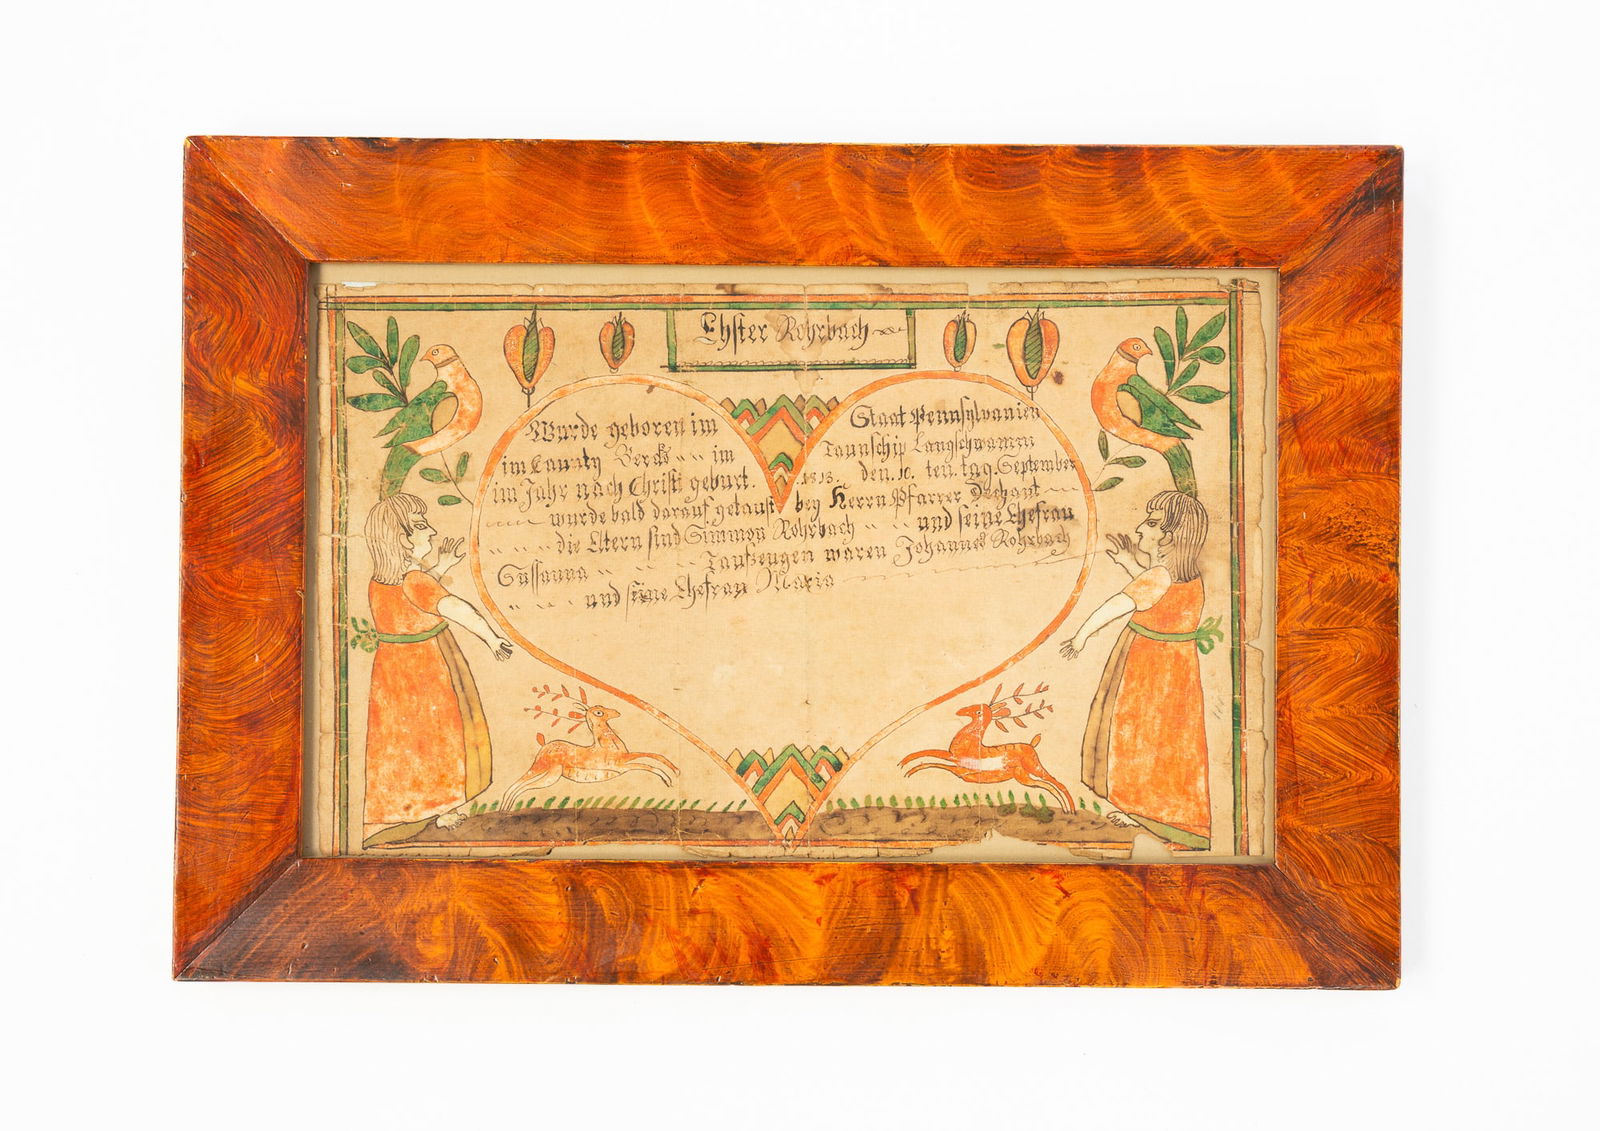 Ehster Rohrbach
Wurde geboren im Staat Pennsylvanien
im Caunty Bercks im Taunschip Langschwamm
im Jahr nach Christi geburt. 1813. den. 10. ten. tag. September
wurde bald darauf getauft bey Herrn Pfarrer Dechant
die Eltern sind Simmon Rohrbach und seine Ehefrau
Sussanna Taufzeugen waren Johannes Rohrbach
und seine Ehefrau Maria